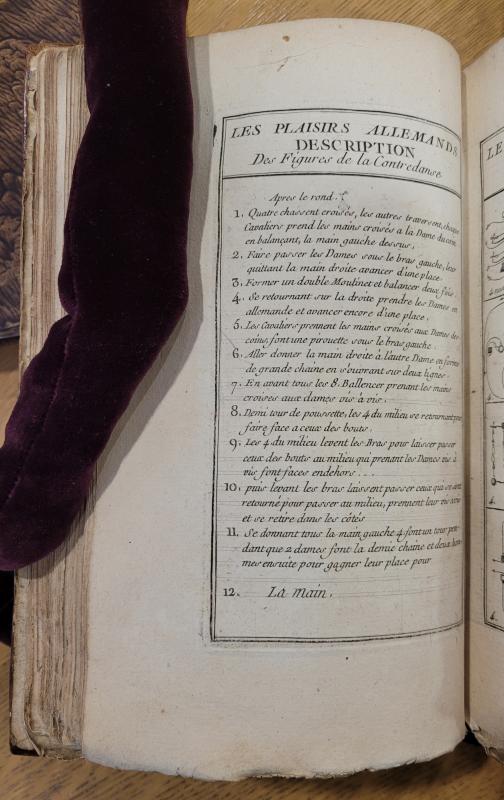 LES PLAISIRS ALLEMANDS
DESCRIPTION
Des Figures de la Contredanse
Apres le rond.
1. Quatre chassent croisés, les autres traversent, chaque
Cavaliers prend les mains croisés a la Dame du coin,
en balançant, la main gauche dessus,
2. Faire passer les Dames sous le bras gauche, leur
quittant la main droite avancer d'une place
3. Former un double Moulinet et balancer deux fois
4. Se retournant sur la droite prendre les Dames en
allemande et avancer encore d'une place.
5. Les Cavaliers prennent les mains croisés aux Dames des
coins, font une pirouette sous le bras gauche
6. Aller donner la main droite à l'autre Dame en forme
de grande chaine en s'ouvrant sur deux lignes
7. En avant tous les 8. Ballencer prenant les mains
croisés aux dames vis à vis.
8. Demi tour de poussette, les 4 du milieu se retournant pour
faire face a ceux des bouts.
9. Les 4 du milieu levent les Bras pour laisser passer
ceux des bouts au milieu qui prenant les Dames vis à
vis font faces endehors...
10. puis levant les bras laissent passer ceux qui se sont
retourné pour passer au milieu, prennent leur vis à vis
et se retire dans les côtés
11. Se donnant tous la main gauche 4 font un tour pen-
dant que 2 dames font la demie chaine et deux hom-
mes ensuite pour gagner leur place pour
12. La main.
LE